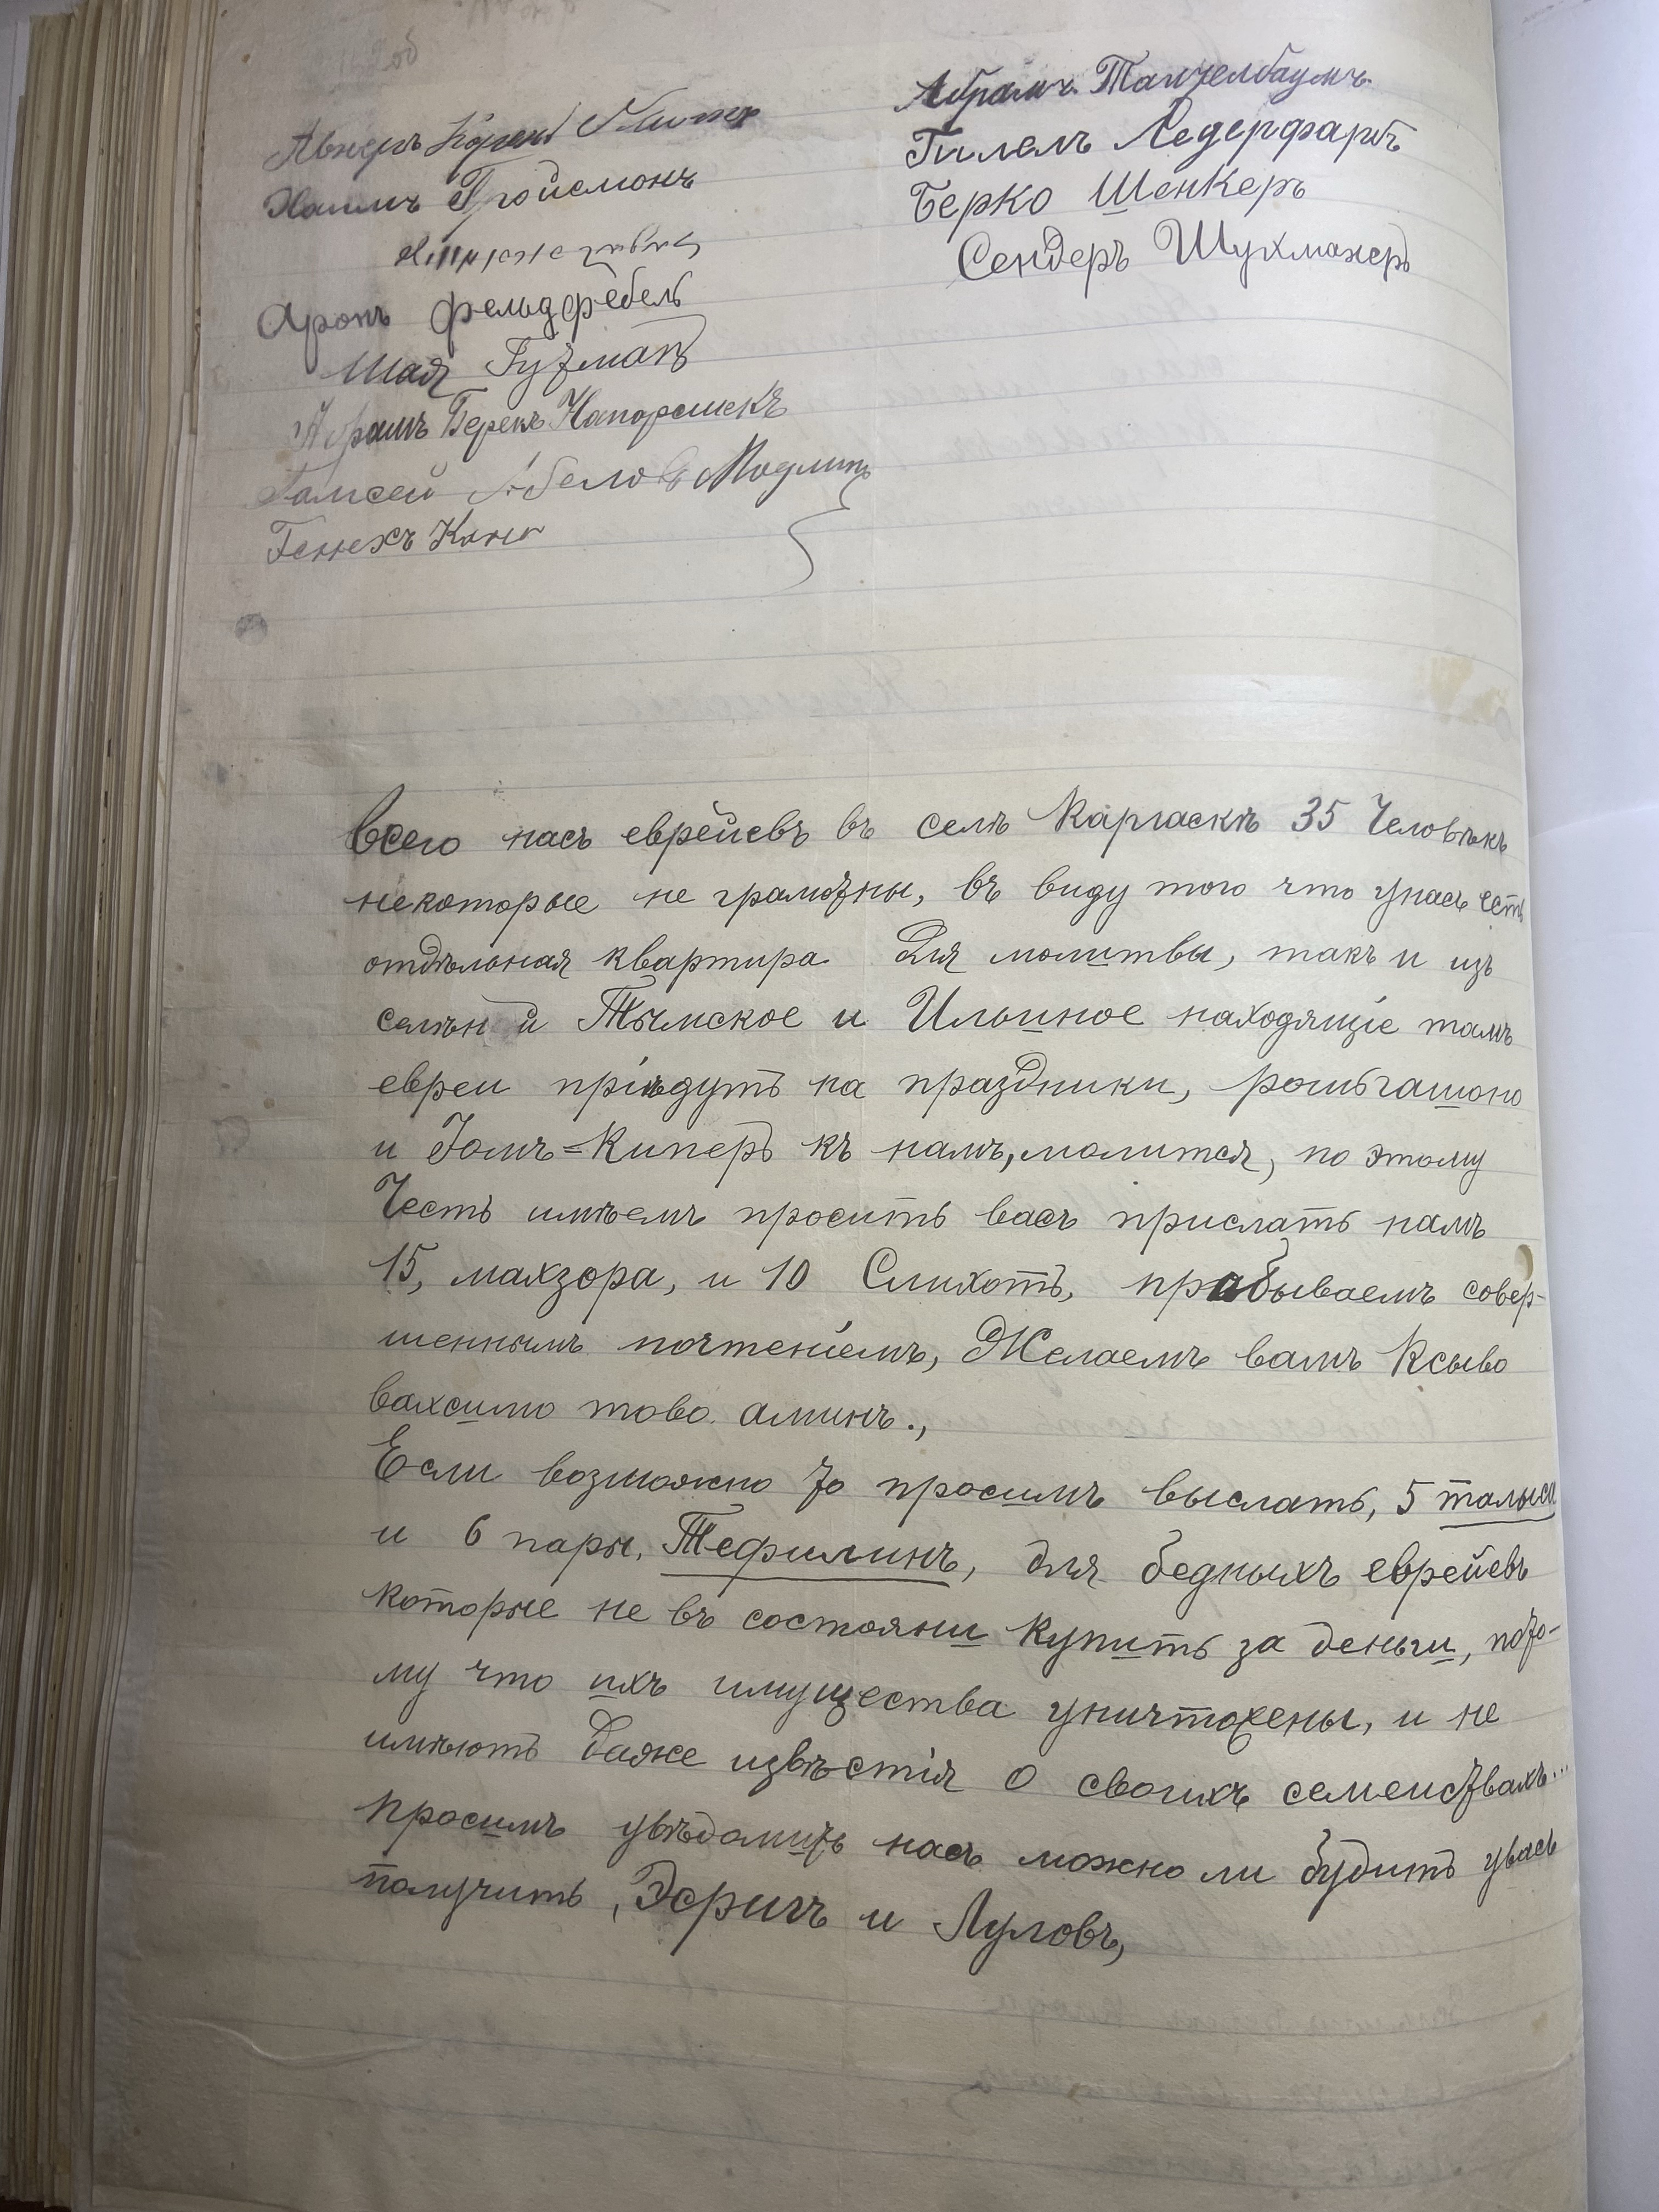 Абрамъ Танценбаумъ
Гилелъ Ледерфарбъ
Берко Шенкеръ
Сендеръ Шухмахеръ
Хаимъ Гройсмонъ
Аронъ фельдфебель
Шая Гузманъ
Абрамъ Берекъ
Генехъ
Всего насъ еврейевъ въ селѣ Каргаскѣ 35 Человѣкъ
некоторые не грамотны, въ виду того что унасъ есть
отдѣльная квартира Для молитвы, такъ и изъ
Тымское и Ильиное находящіе тамъ
евреи пріѣдутъ на праздники, рошъгашоно
и Іомъ=Киперъ къ намъ, молится, по этому
Честь имѣемъ просить васъ прислать намъ
15, махзора, и 10 Слихотъ, прабываемъ совер-
шеннымъ почтеніемъ, Желаемъ вамъ Ксыво
вахсимо тово. аминъ.,
Если возможно то просимъ выслать, 5 талыси
и 6 пары, Тефилинъ, для бедныхъ еврейевъ
которые не въ состояни купить за деньги, пото-
му что ихъ имущества уничтожены, и не
имѣютъ даже извѣстія о своихъ семействахъ...
просимъ увѣдомить насъ можно ли будитъ увасъ
получить, Эсригъ и Луловъ,